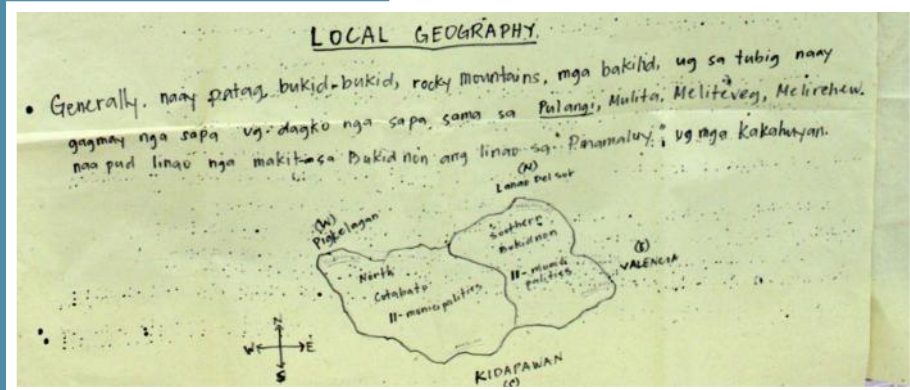 LOCAL GEOGRAPHY.
• Generally. naay patag, bukid-bukid, rocky mountains, mga bakilid, ug sa tubig naay
gagmay nga sapa ug dagko nga sapa, sama sa Pulangi, Mulita, Meliteveg, Melirehew.
naa pud linao nga makita sa Bukidnon ang linao sa Pinamaluy, ug mga kakahuyan.
(N)
Lanao Del Sur
(W)
Pigkelagan
Southern
Bukidnon
11-munici
palities
(E)
VALENCIA
North
Cotabato
11-municipalities
N
W E
S
KIDAPAWAN
(S)